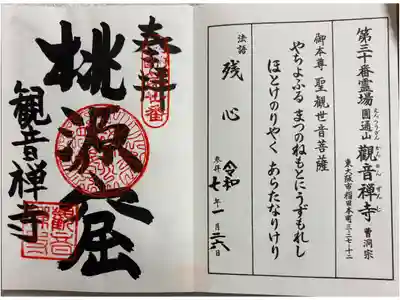 第三十番霊場
圓通山 觀音禅寺 曹洞宗
えんつうざん かんのんぜんじ
東大阪市稲田本町三-七-十二
御本尊 聖觀世音菩薩
やちよふる まつのねもとにうずもれし
ほとけのりやく あらたなりけり
法語 残心
参拝 令和七年一月二六日
奉拝
桃源窟
観音禅寺